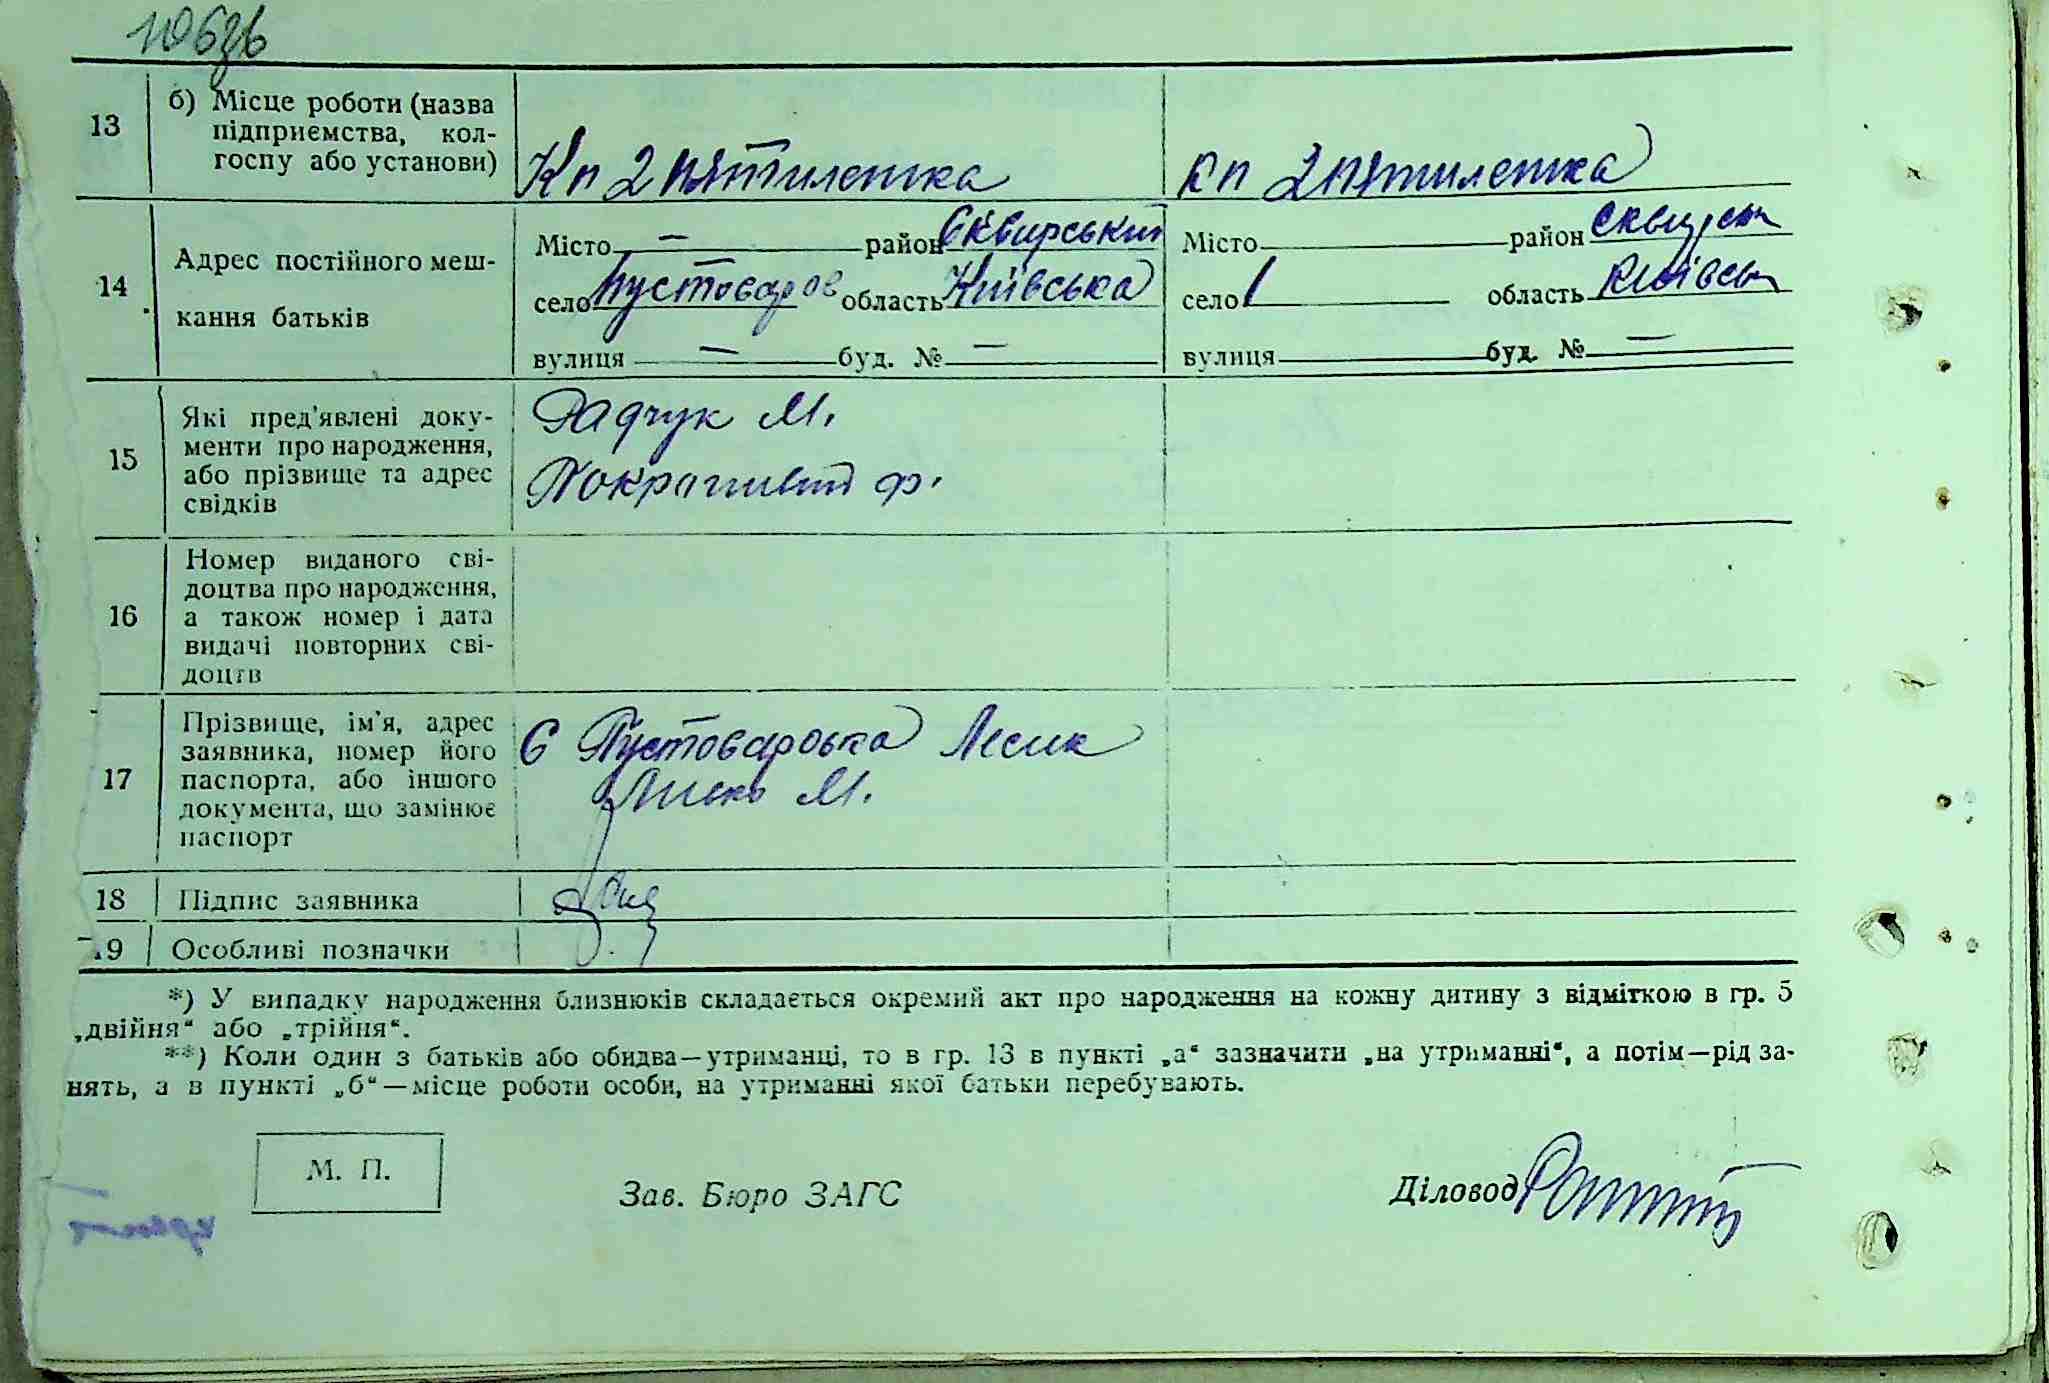 106зв
13
б) Місце роботи (назва
підприємства, кол-
госпу або установи)
Кп 2 пятилетка
кп 2 пятилетка
14
Адрес постійного меш-
кання батьків
Місто — район Сквирський
село Пустоваров область Київська
вулиця — буд. № —
Місто район Сквирськ
село область Київськ
вулиця буд. № —
15
Які пред'явлені доку-
менти про народження,
або прізвище та адрес
свідків
Радчук М.
ф.
16
Номер виданого сві-
доцтва про народження,
а також номер і дата
видачі повторних сві-
доцтв
17
Прізвище, ім'я, адрес
заявника, номер його
паспорта, або іншого
документа, що замінює
паспорт
С Пустоваровка Лесик
М.
18
Підпис заявника
19
Особливі позначки
*) У випадку народження близнюків складається окремий акт про народження на кожну дитину з відміткою в гр. 5
„двійня“ або „трійня“.
**) Коли один з батьків або обидва—утриманці, то в гр. 13 в пункті „а“ зазначити „на утриманні“, а потім—рід за-
нять, а в пункті „б“—місце роботи особи, на утриманні якої батьки перебувають.
М. П.
Зав. Бюро ЗАГС
Діловод